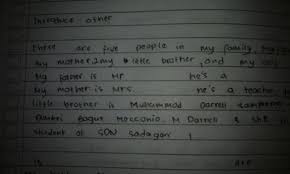 Introduce other
There are five people in my family, my
my mother, my little brother, and my
My father is Mr he's a
My mother is Mrs. he's a teacher
little brother is Muhammad Darrell
Bagus M Darrell & she is
student of SDN Sadagori 1
is are